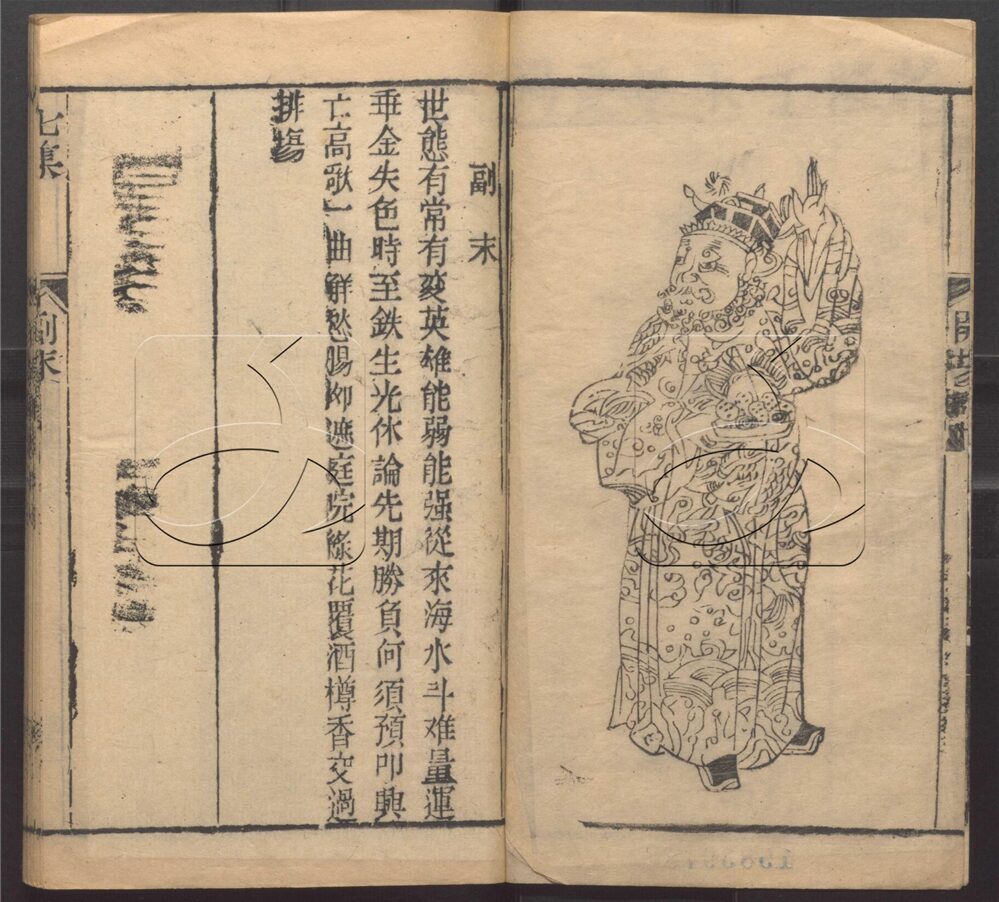 副末
世態有常有変英雄能弱能强從來海水斗难量運
乖金失色時至鉄生光休論先期勝負何須預叩興
亡高歌一曲解愁腸柳遮庭院綠花覆酒樽香交過
排場
七集
副末